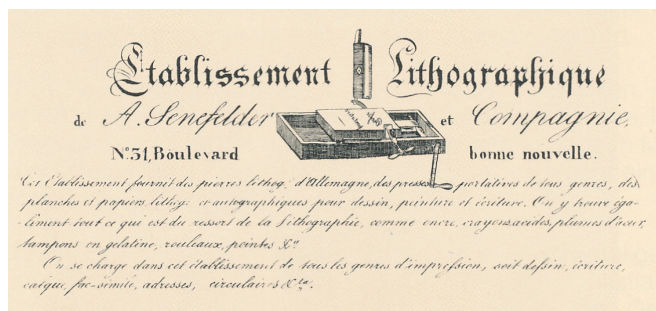 Etablissement Lithographique
de A. Senefelder et Compagnie,
N.º 31, Boulevard bonne nouvelle.
Cet Etablissement fournit des pierres lithog: d'Allemagne, des presses portatives de tous genres, des
planches et papiers lithog: et autographiques pour dessin, peinture et écriture. On y trouve éga-
lement tout ce qui est du ressort de la Lithographie, comme encre, crayons, acides, plumes d'acier,
tampons en gélatine, rouleaux, pointes &.ª
On se charge dans cet établissement de tous les genres d'impression, soit dessin, écriture,
calque, fac-simile, adresses, circulaires &.ta.